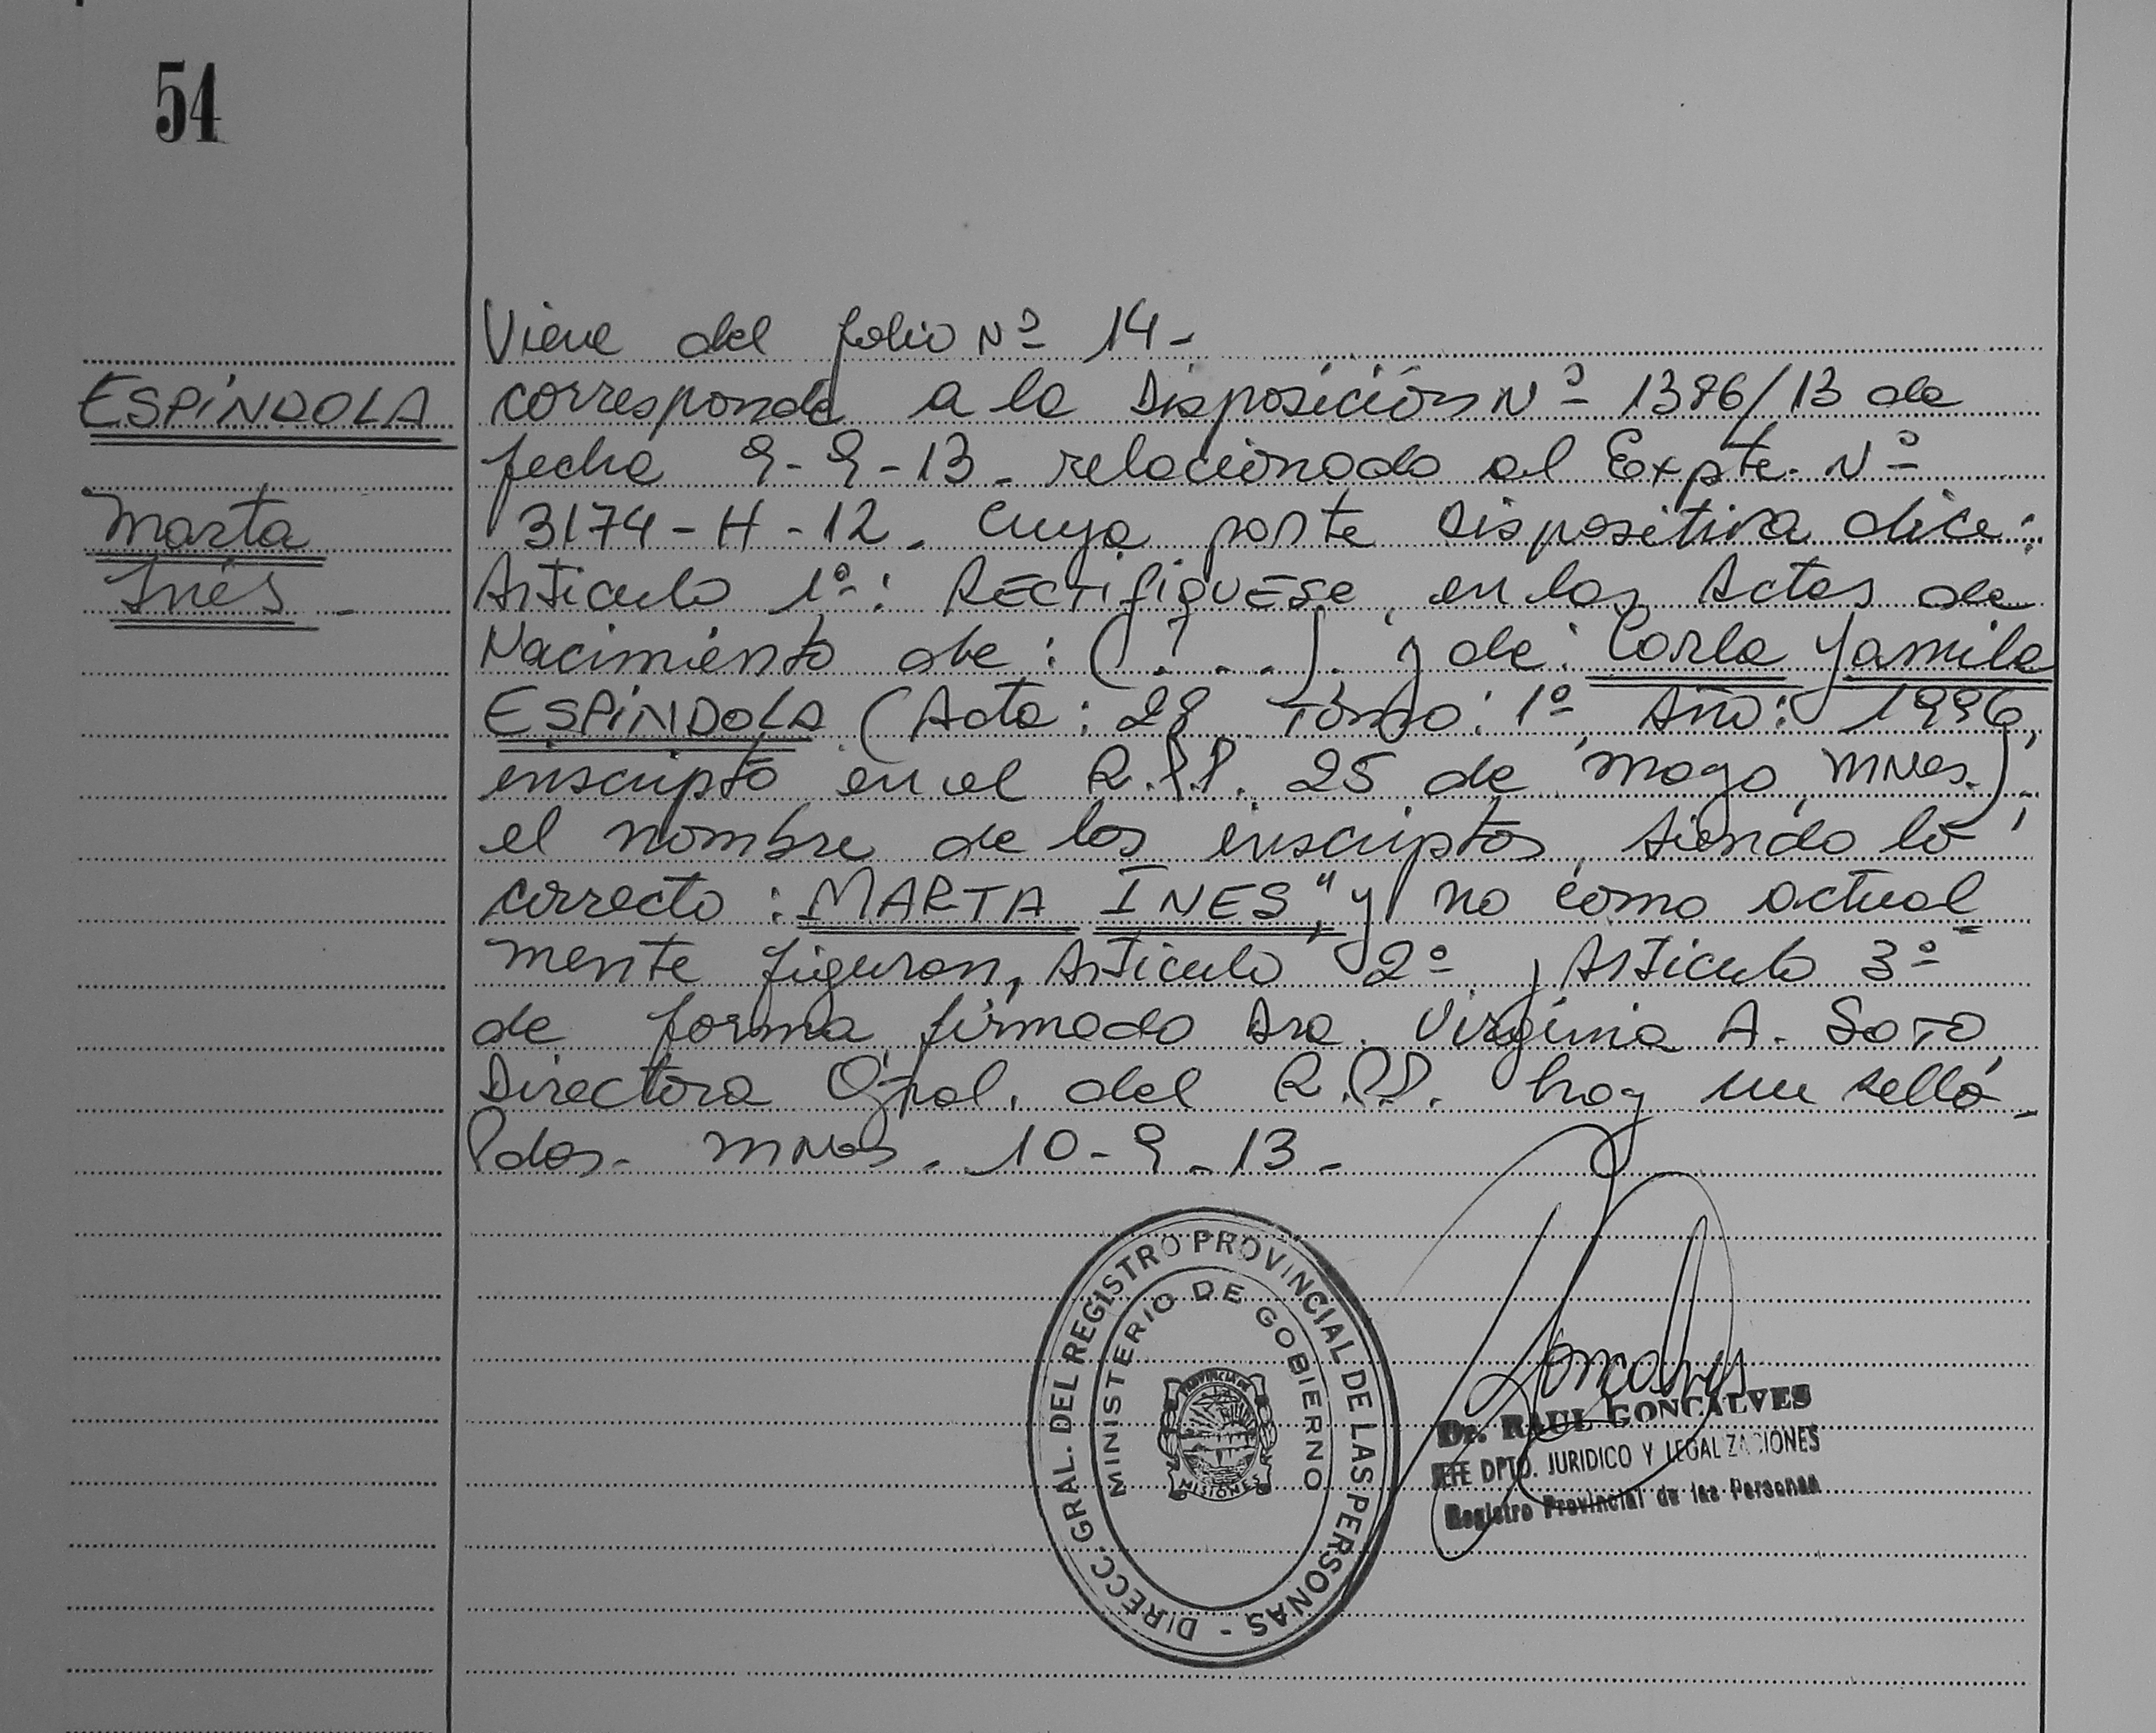 54
Viene del folio Nº 14-
ESPÍNDOLA
corresponde a la Disposición Nº 1386/13 de
fecha 9-9-13- relacionado al Expte. Nº
Marta
3174-H-12. Cuya parte dispositiva dice:
Inés -
Artículo 1º: RECTIFIQUESE, en las Actas de
Nacimiento de: (....). y de: Carla Yamila
ESPÍNDOLA (Acta: 28, Tomo: 1º, Año: 1996,
inscripto en el R.P.P. 25 de mayo, Mnes.),
el nombre de los inscriptos, siendo lo
correcto: MARTA INES", y no como actual
mente figuran, Artículo 2º y Artículo 3º
de forma, firmado Dra. Virginia A. SOTO,
Directora Gral. del R.P.P. hay un sello-
Pdas- Mnes. 10-9-13-
DIRECC. GRAL. DEL REGISTRO PROVINCIAL DE LAS PERSONAS -
MINISTERIO DE GOBIERNO
PROVINCIA DE
MISIONES
Goncalves
Dr. RAUL GONCALVES
JEFE DPTO. JURIDICO Y LEGALIZACIONES
Registro Provincial de las Personas